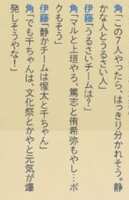 角「この7人やったら、はっきり分かれそう。静
かな人とうるさい人」
伊藤「うるさいチームは？」
角「マルと上垣やろ。篤志と侑希弥もやし…ボ
クもそう」
伊藤「静かチームは惺太と千ちゃん」
角「でも千ちゃんは、文化祭とかやと元気が爆
発しそうやな！」